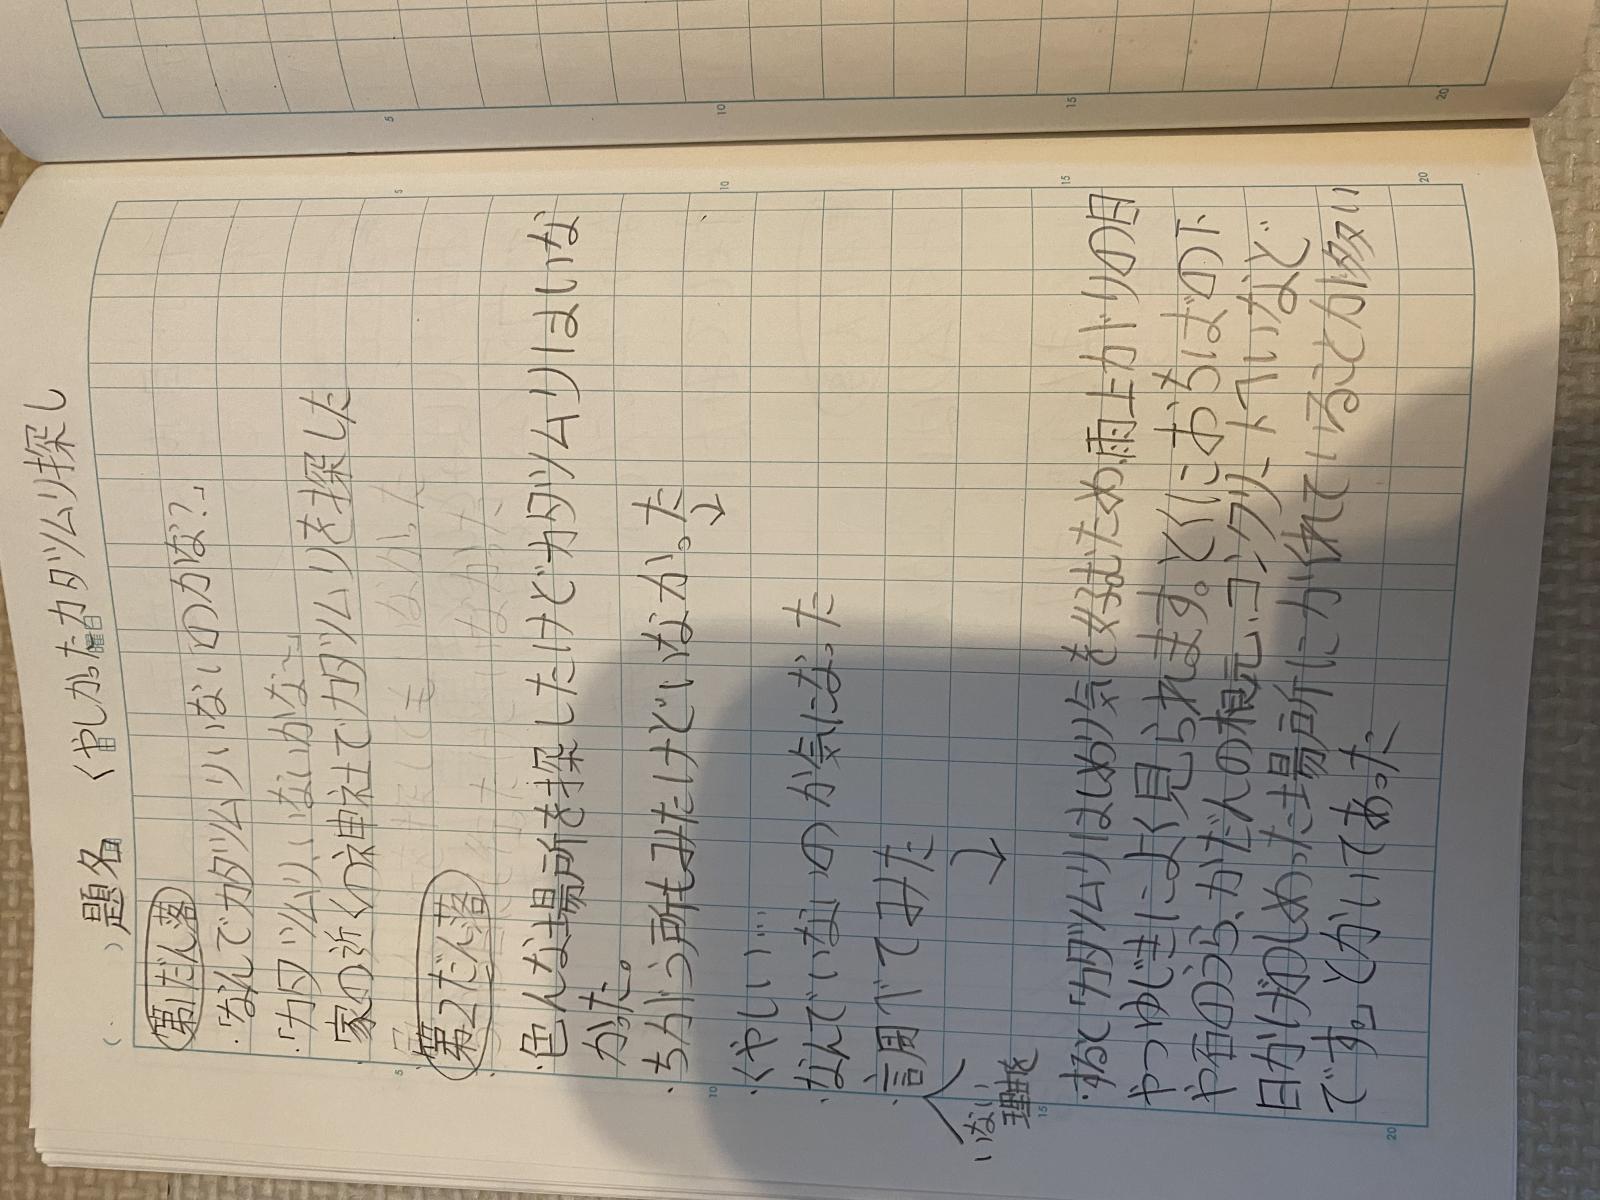 題名 くやしかったカタツムリ探し
第1だん落
・「なんでカタツムリいないのかな?」
・「カタツムリ、いないかな~?」
家の近くの神社でカタツムリを探した
第2だん落
・色んな場所を探したけどカタツムリはいな
かった。
・ちがう所もみたけどいなかった
↓
・くやしい…
・なんでいないのか気になった
・調べてみた
いない
理由を
↓
・すると「カタツムリはしめり気を好むため、雨上がりの日
やつゆじきによく見られます。とくにおちばの下
や石のうら、かだんの根元、コンクリートへいなど
日かげのしめった場所にかくれていることが多い
です。」とかいてあった